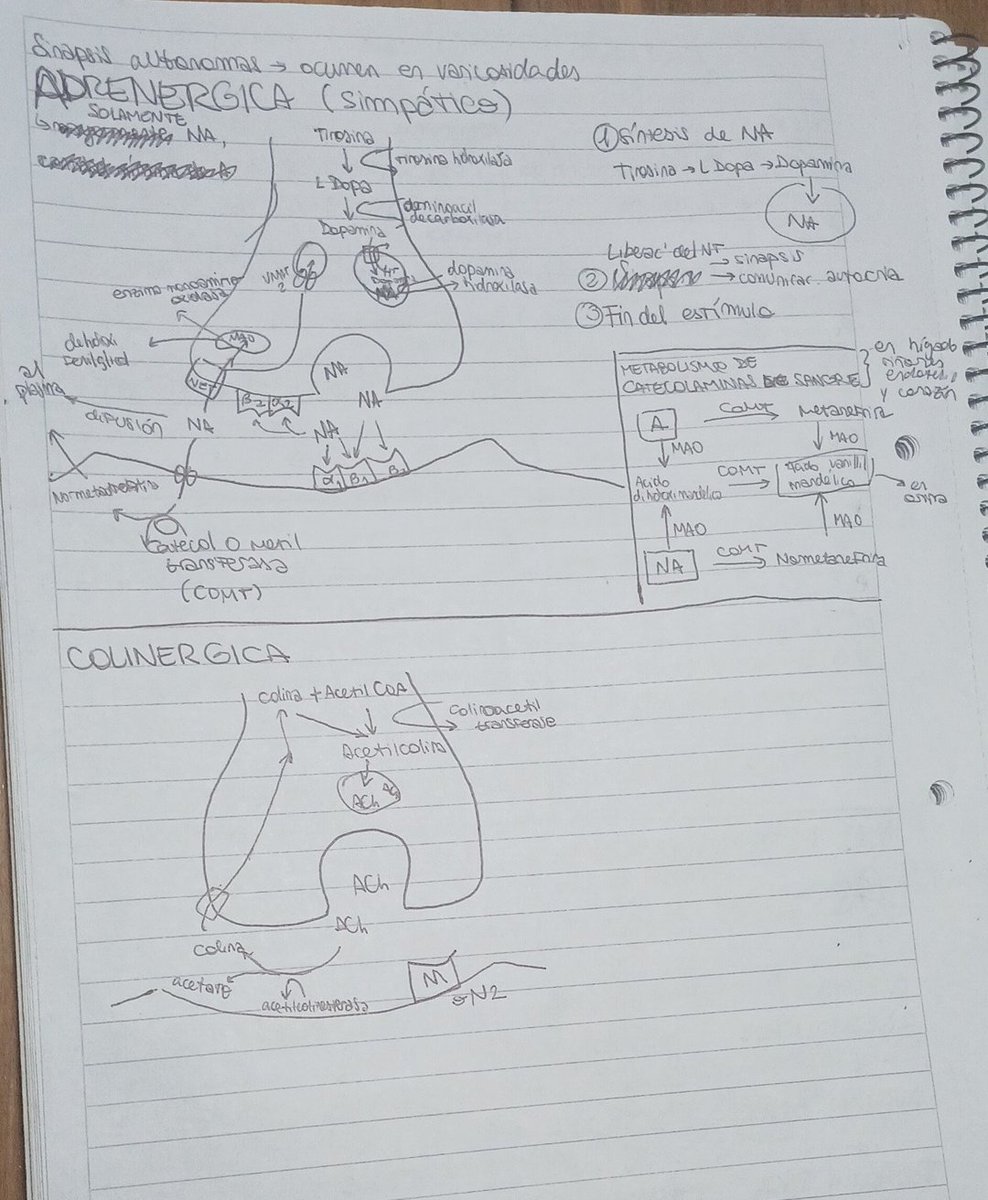 Sinapsis autonomas → ocurren en varicosidades
ADRENERGICA (Simpático)
SOLAMENTE
NA,
Tirosina
tirosina hidroxilasa
L Dopa
decarboxilasa
Dopamina
VMAT
2
NA
dopamina
hidroxilasa
enzima monoamino
oxidasa
MAO
NET
β2 α2
NA
NA
NA
al
plasma
difusión
NA
α1 β1
Normetanefrina
Catecol O metil
transferasa
(COMT)
① síntesis de NA
Tirosina → L Dopa → Dopamina
NA
Liberac' del NT
→ sinapsis
② → comunicac. autocrina
③ Fin del estímulo
METABOLISMO DE
CATECOLAMINAS SANGRE
en hígado
y corazón
A
COMT
Metanefrina
MAO
MAO
Acido
COMT
Acido vanillil
mandelico
en
orina
MAO
MAO
NA
COMT
Normetanefrina
COLINERGICA
Colina + Acetil COA
Colinoacetil
transferasa
Acetilcolina
ACh
ACh
ACh
ACh
Colina
acetato
acetilcolinesterasa
M
o N2